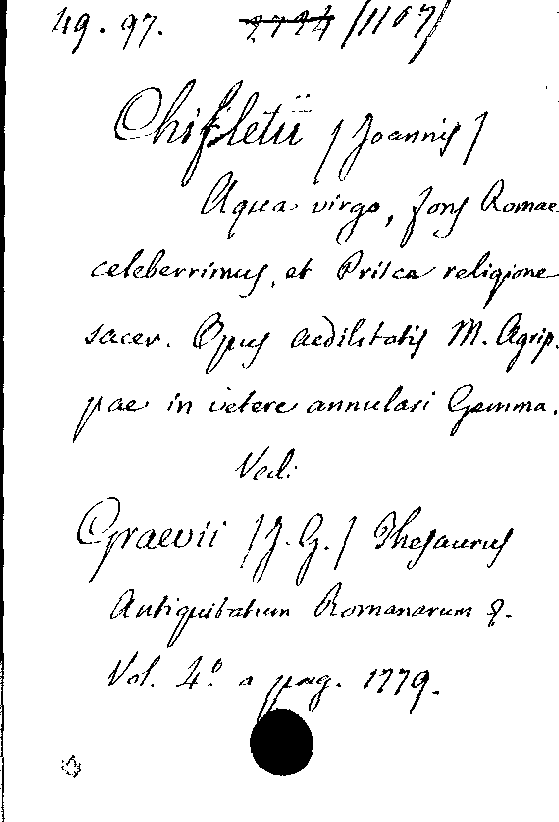 49. 97. 2724 /1107/
Chifletii /Joannis/
Aqua virgo, fons Romae
celeberrimus, et Prisca religione
sacer. Opus aedilitatis M. Agrip.
pae in vetere annulari Gemma.
Vedi
Graevii /J. G./ Thesaurus
Antiquitatum Romanarum &.
Vol. 4º a pag. 1779.